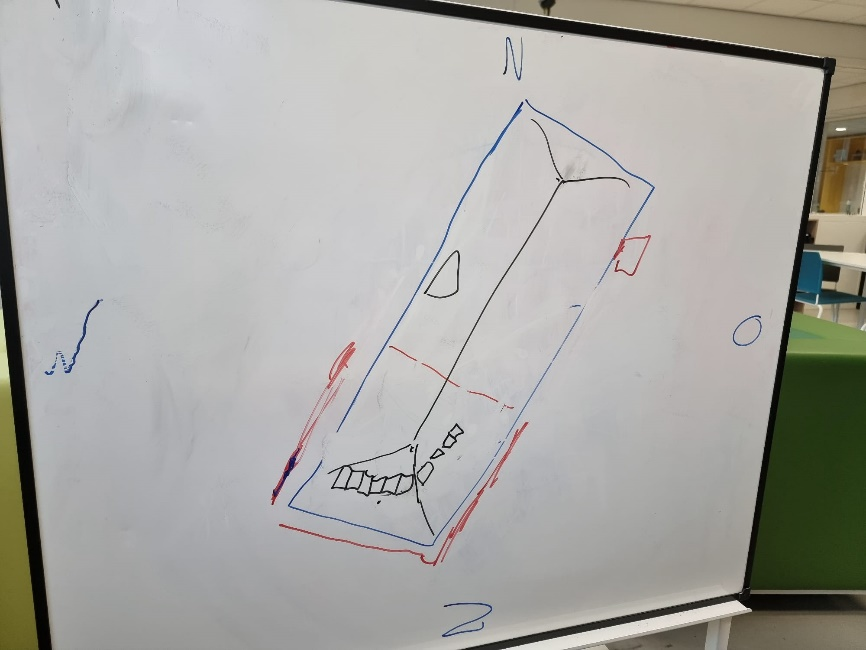 N
W
O
Z